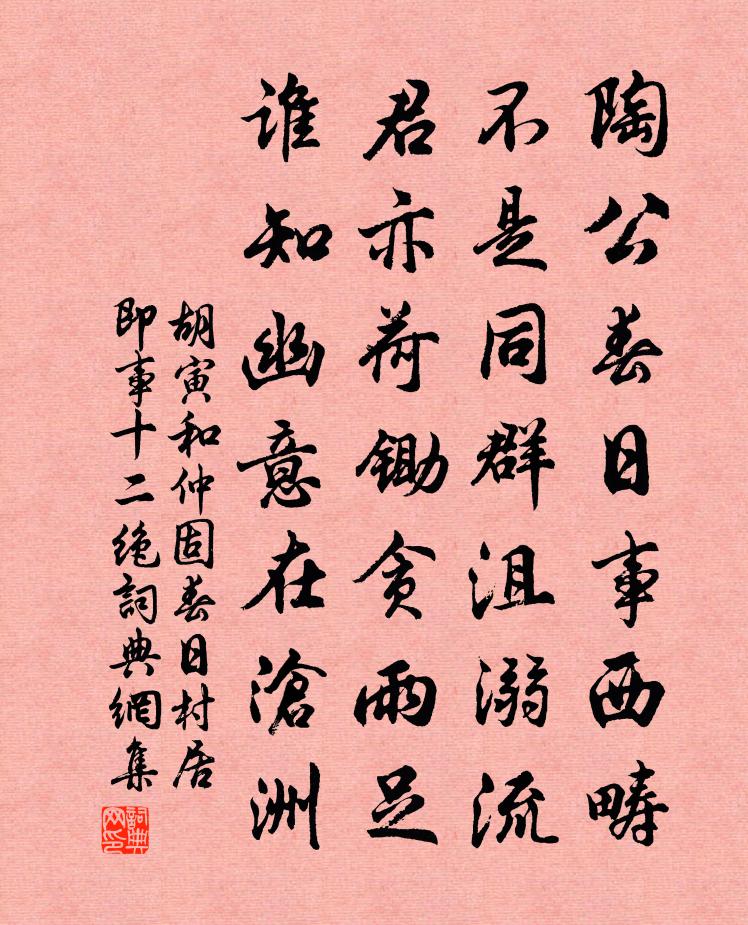 陶公春日事西畴
不是同群沮溺流
君亦荷锄贪雨足
谁知幽意在沧洲
胡寅和仲固春日村居
即事十二绝词典網集
詞典网印